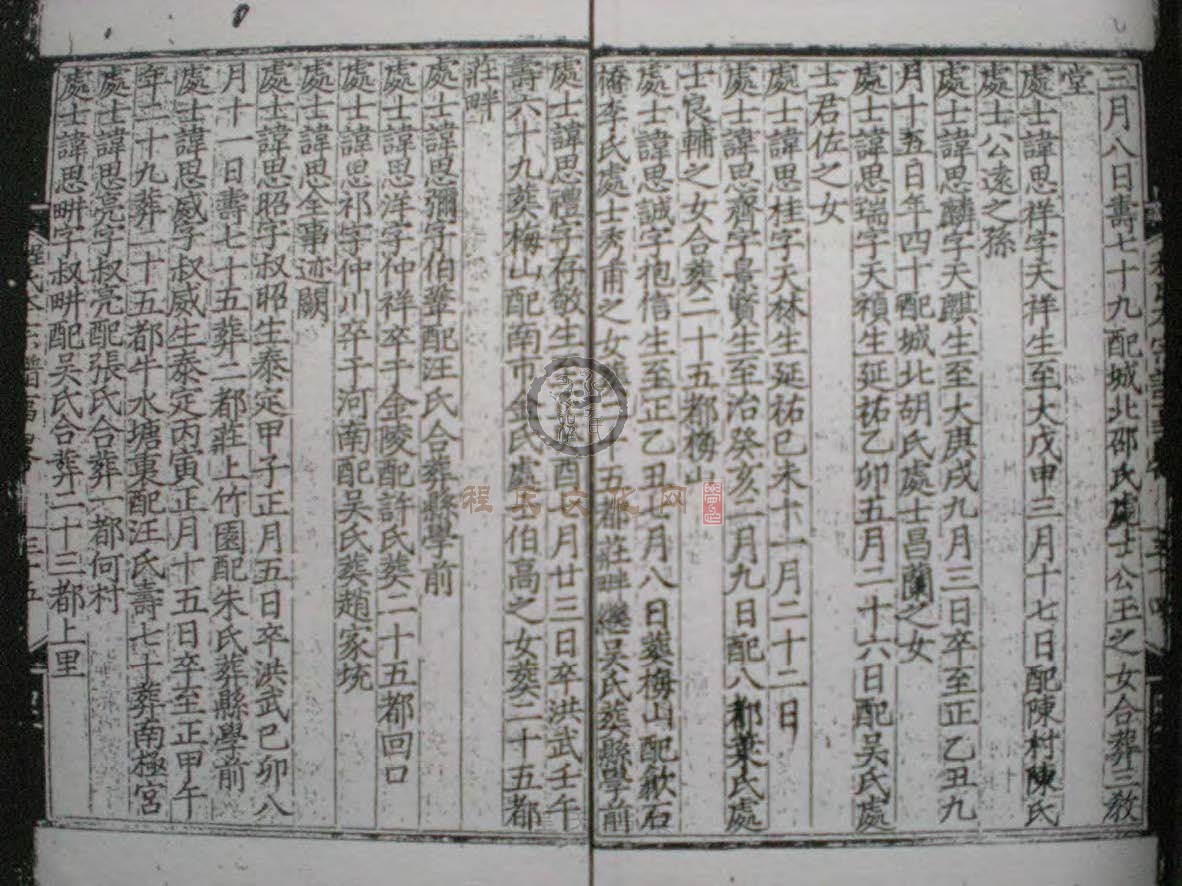 三月八日壽七十九配城北邵氏處士公玉之女合葬三教
堂
處士諱思祥字天祥生至大戊申三月十七日配陳村陳氏
處士公遠之孫
處士諱思麟字天麒生至大庚戌九月三日卒至正乙丑九
月十五日年四十配城北胡氏處士昌蘭之女
處士諱思瑞字天禎生延祐乙卯五月二十六日配吴氏處
士君佐之女
處士諱思桂字天林生延祐己未十一月二十二日
處士諱思齊字景賢生至治癸亥二月九日配八都葉氏處
士良輔之女合葬二十五都梅山
處士諱思誠字抱信生至正乙丑七月八日葬梅山配歙石
橋李氏處士秀甫之女葬二十五都莊畔繼吴氏葬縣學前
處士諱思禮字存敬生酉七月廿三日卒洪武壬午
壽六十九葬梅山配南市金氏處士伯高之女葬二十五都
莊畔
處士諱思彌字伯鞏配汪氏合葬縣學前
處士諱思洋字仲祥卒于金陵配許氏葬二十五都回口
處士諱思祁字仲川卒于河南配吴氏葬趙家坑
處士諱思全事迹闕
處士諱思昭字叔昭生泰定甲子正月五日卒洪武己卯八
月十一日壽七十五葬二都莊上竹園配朱氏葬縣學前
處士諱思威字叔威生泰定丙寅正月十五日卒至正甲午
年二十九葬二十五都牛水塘東配汪氏壽七十葬南極宮
處士諱思亮字叔亮配張氏合葬一都何村
處士諱思畊字叔畊配吴氏合葬二十三都上里
程氏文化网